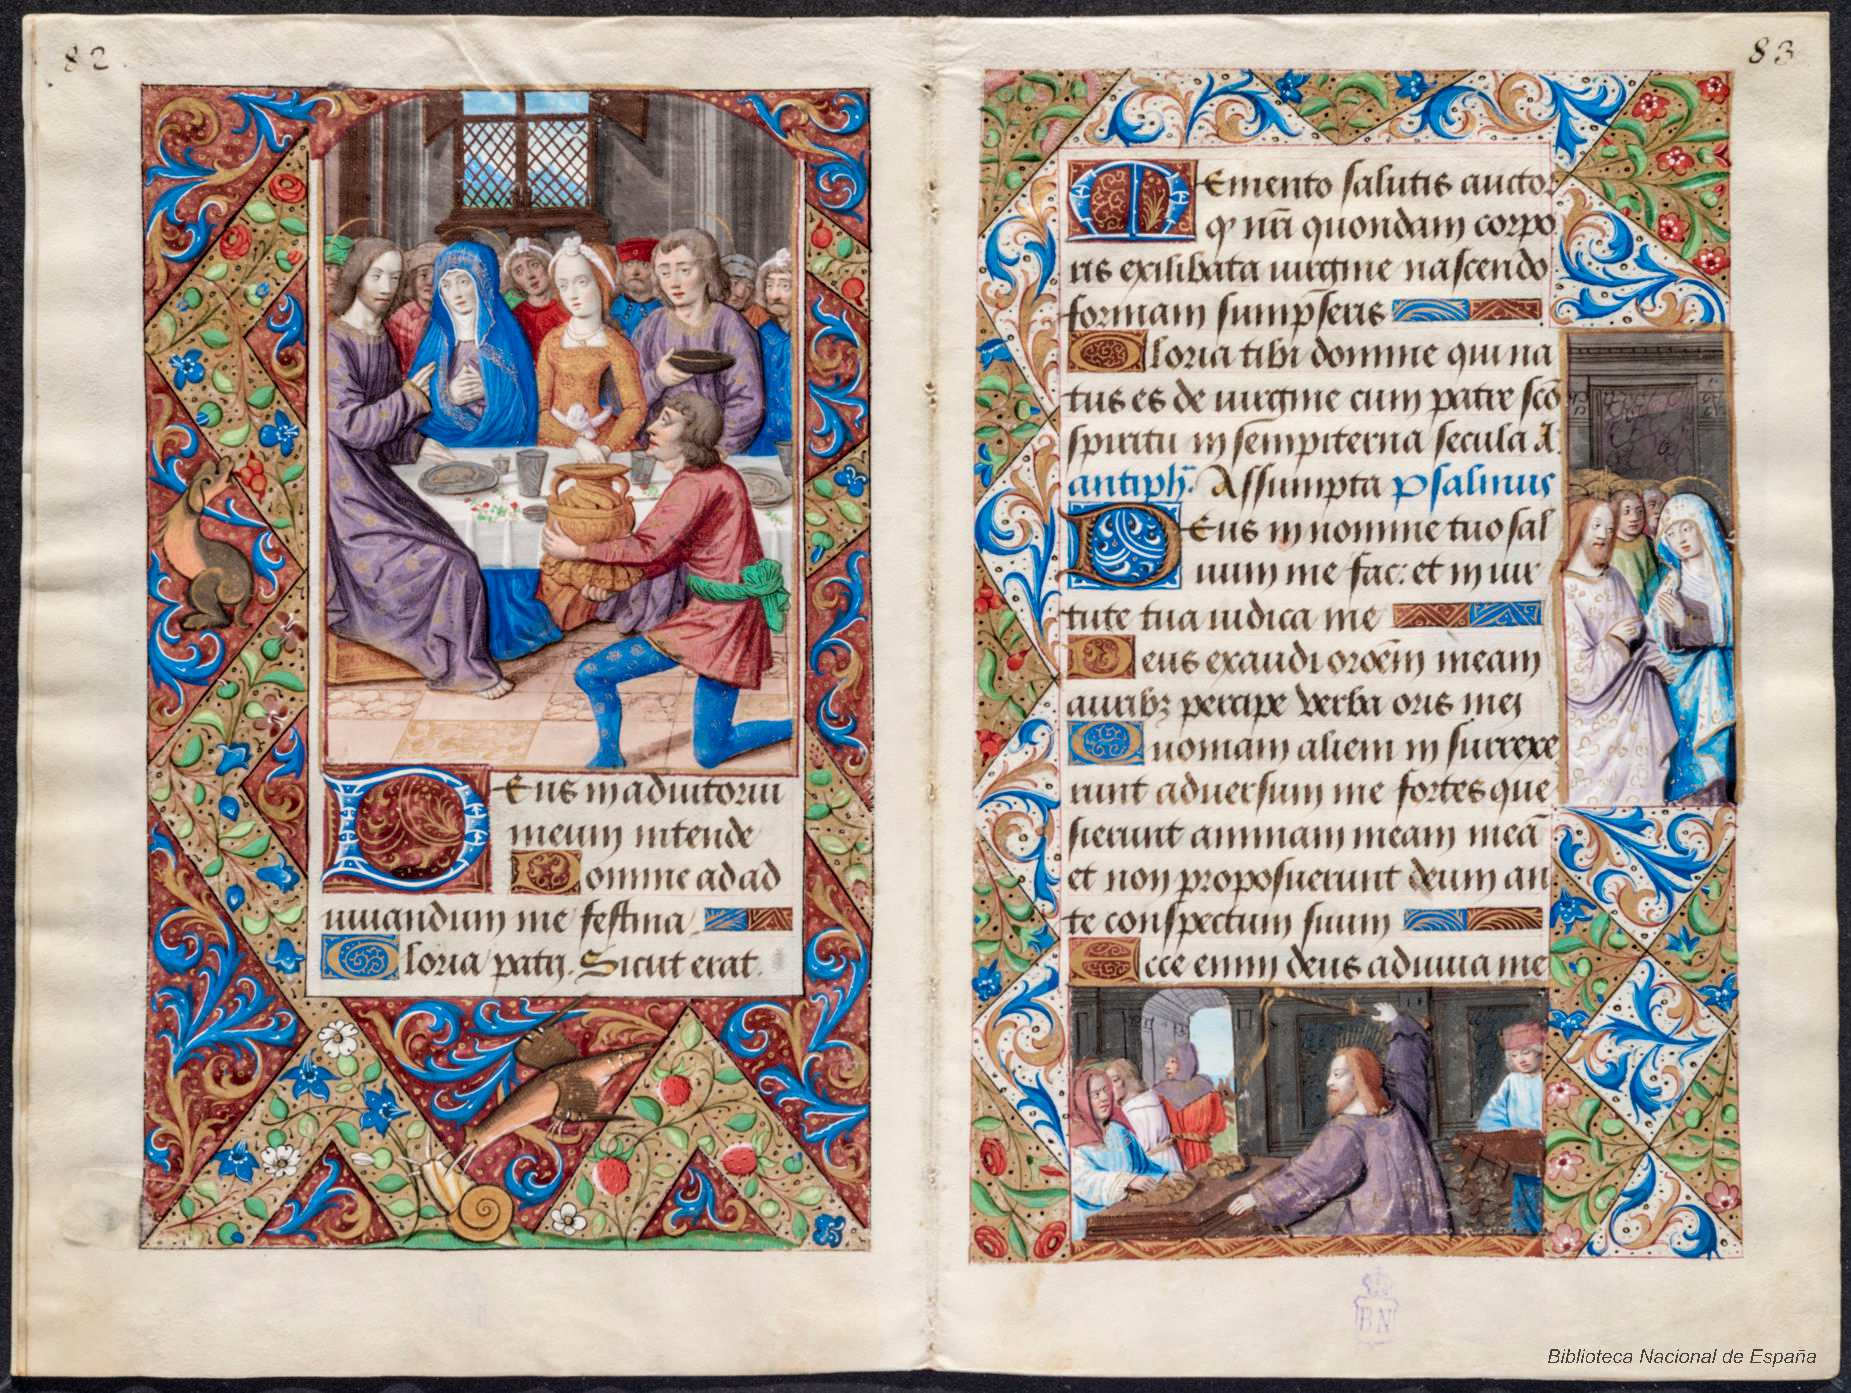 82
Eus in adiutoriu
meum intende
Domine ad ad
iuuandum me festina
Gloria patri. Sicut erat.
83
Memento salutis aucto2
ꝙ nr̄i quondam corpo
ris exilibata uirgine nascendo
formam sump̄seris
Gloria tibi domine qui na
tus es de uirgine cum patre sc̄o
spiritu in sempiterna secula A.
antiph̄. Assumpta psalmus
Deus in nomine tuo sal
uum me fac: et in uir
tute tua iudica me
Deus exaudi oroēm meam
auribꝫ percipe verba oris mei
Quoniam alieni in surrexe
runt aduersum me fortes que
sierunt animam meam meā
et non proposuerunt deum an
te conspectum suum
Ecce enim deus adiuua me
BN
Biblioteca Nacional de España